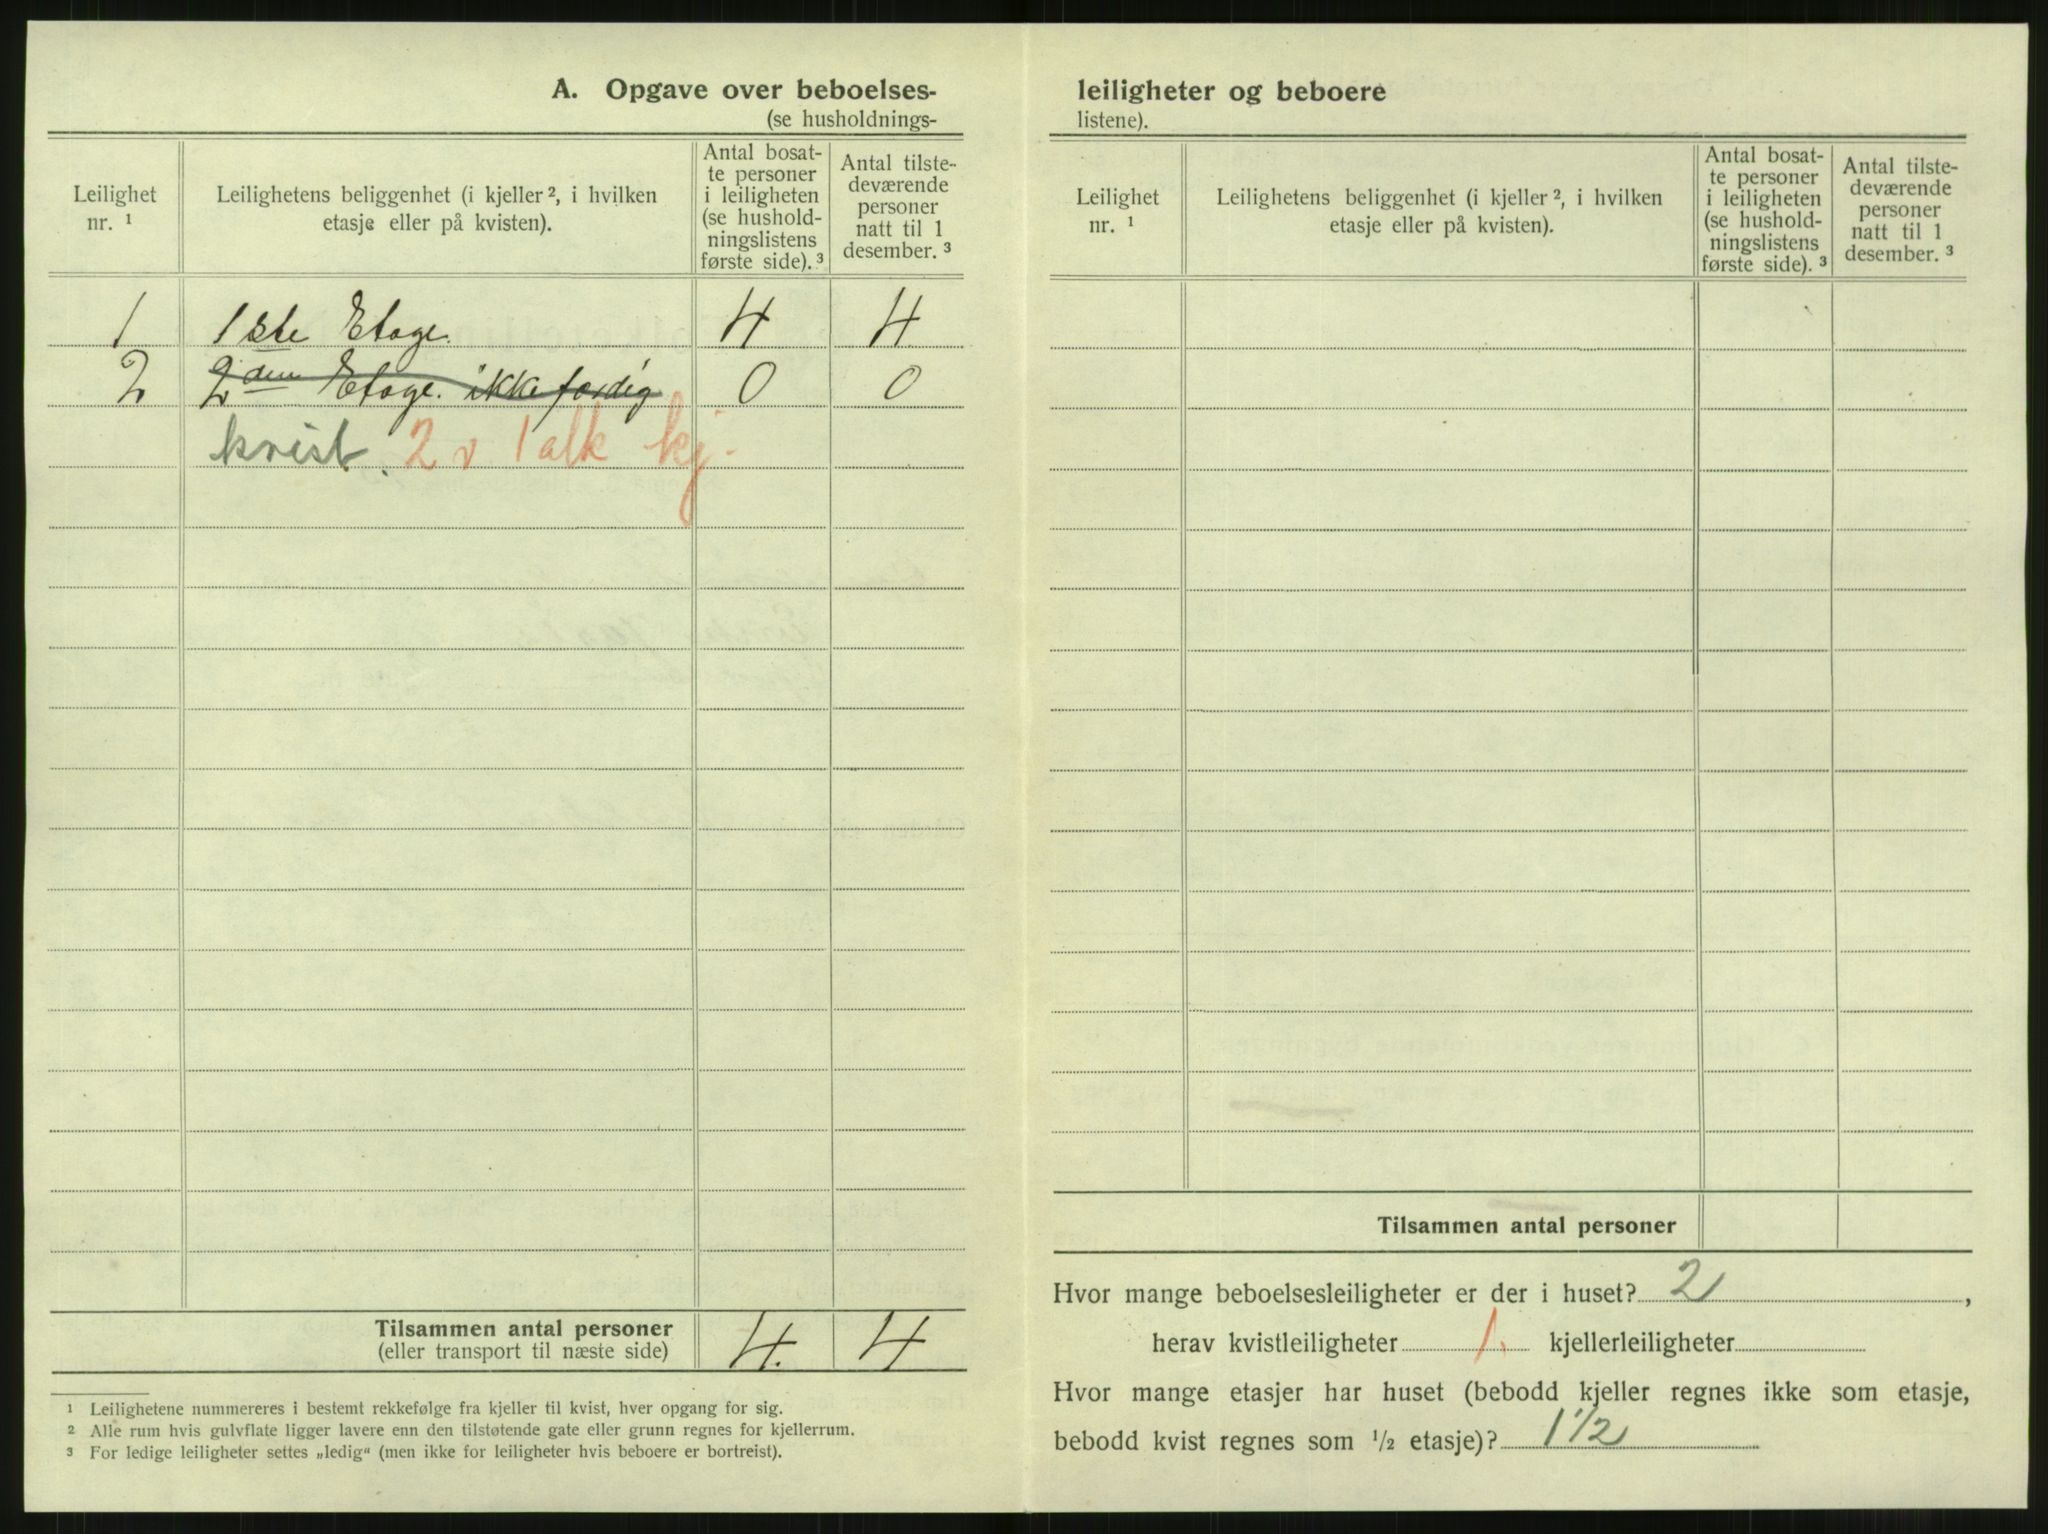 A. Opgave over beboelses-
(se husholdnings-
Leilighet nr. ¹
Leilighetens beliggenhet (i kjeller ², i hvilken etasje eller på kvisten).
Antal bosat-
te personer
i leiligheten
(se hushold-
ningslistens
første side). ³
Antal tilste-
deværende
personer
natt til 1
desember. ³
1 1ste Etage. 4 4
2 2den Etage. ikke færdig 0 0
kvist. 2 v 1 alk kj.
Tilsammen antal personer 4. 4
(eller transport til næste side)
¹ Leilighetene nummereres i bestemt rekkefølge fra kjeller til kvist, hver opgang for sig.
² Alle rum hvis gulvflate ligger lavere enn den tilstøtende gate eller grunn regnes for kjellerrum.
³ For ledige leiligheter settes „ledig“ (men ikke for leiligheter hvis beboere er bortreist).
leiligheter og beboere
listene).
Leilighet nr. ¹
Leilighetens beliggenhet (i kjeller ², i hvilken etasje eller på kvisten).
Antal bosat-
te personer
i leiligheten
(se hushold-
ningslistens
første side). ³
Antal tilste-
deværende
personer
natt til 1
desember. ³
Tilsammen antal personer
Hvor mange beboelsesleiligheter er der i huset? 2,
herav kvistleiligheter 1. kjellerleiligheter
Hvor mange etasjer har huset (bebodd kjeller regnes ikke som etasje,
bebodd kvist regnes som ½ etasje)? 1 1/2